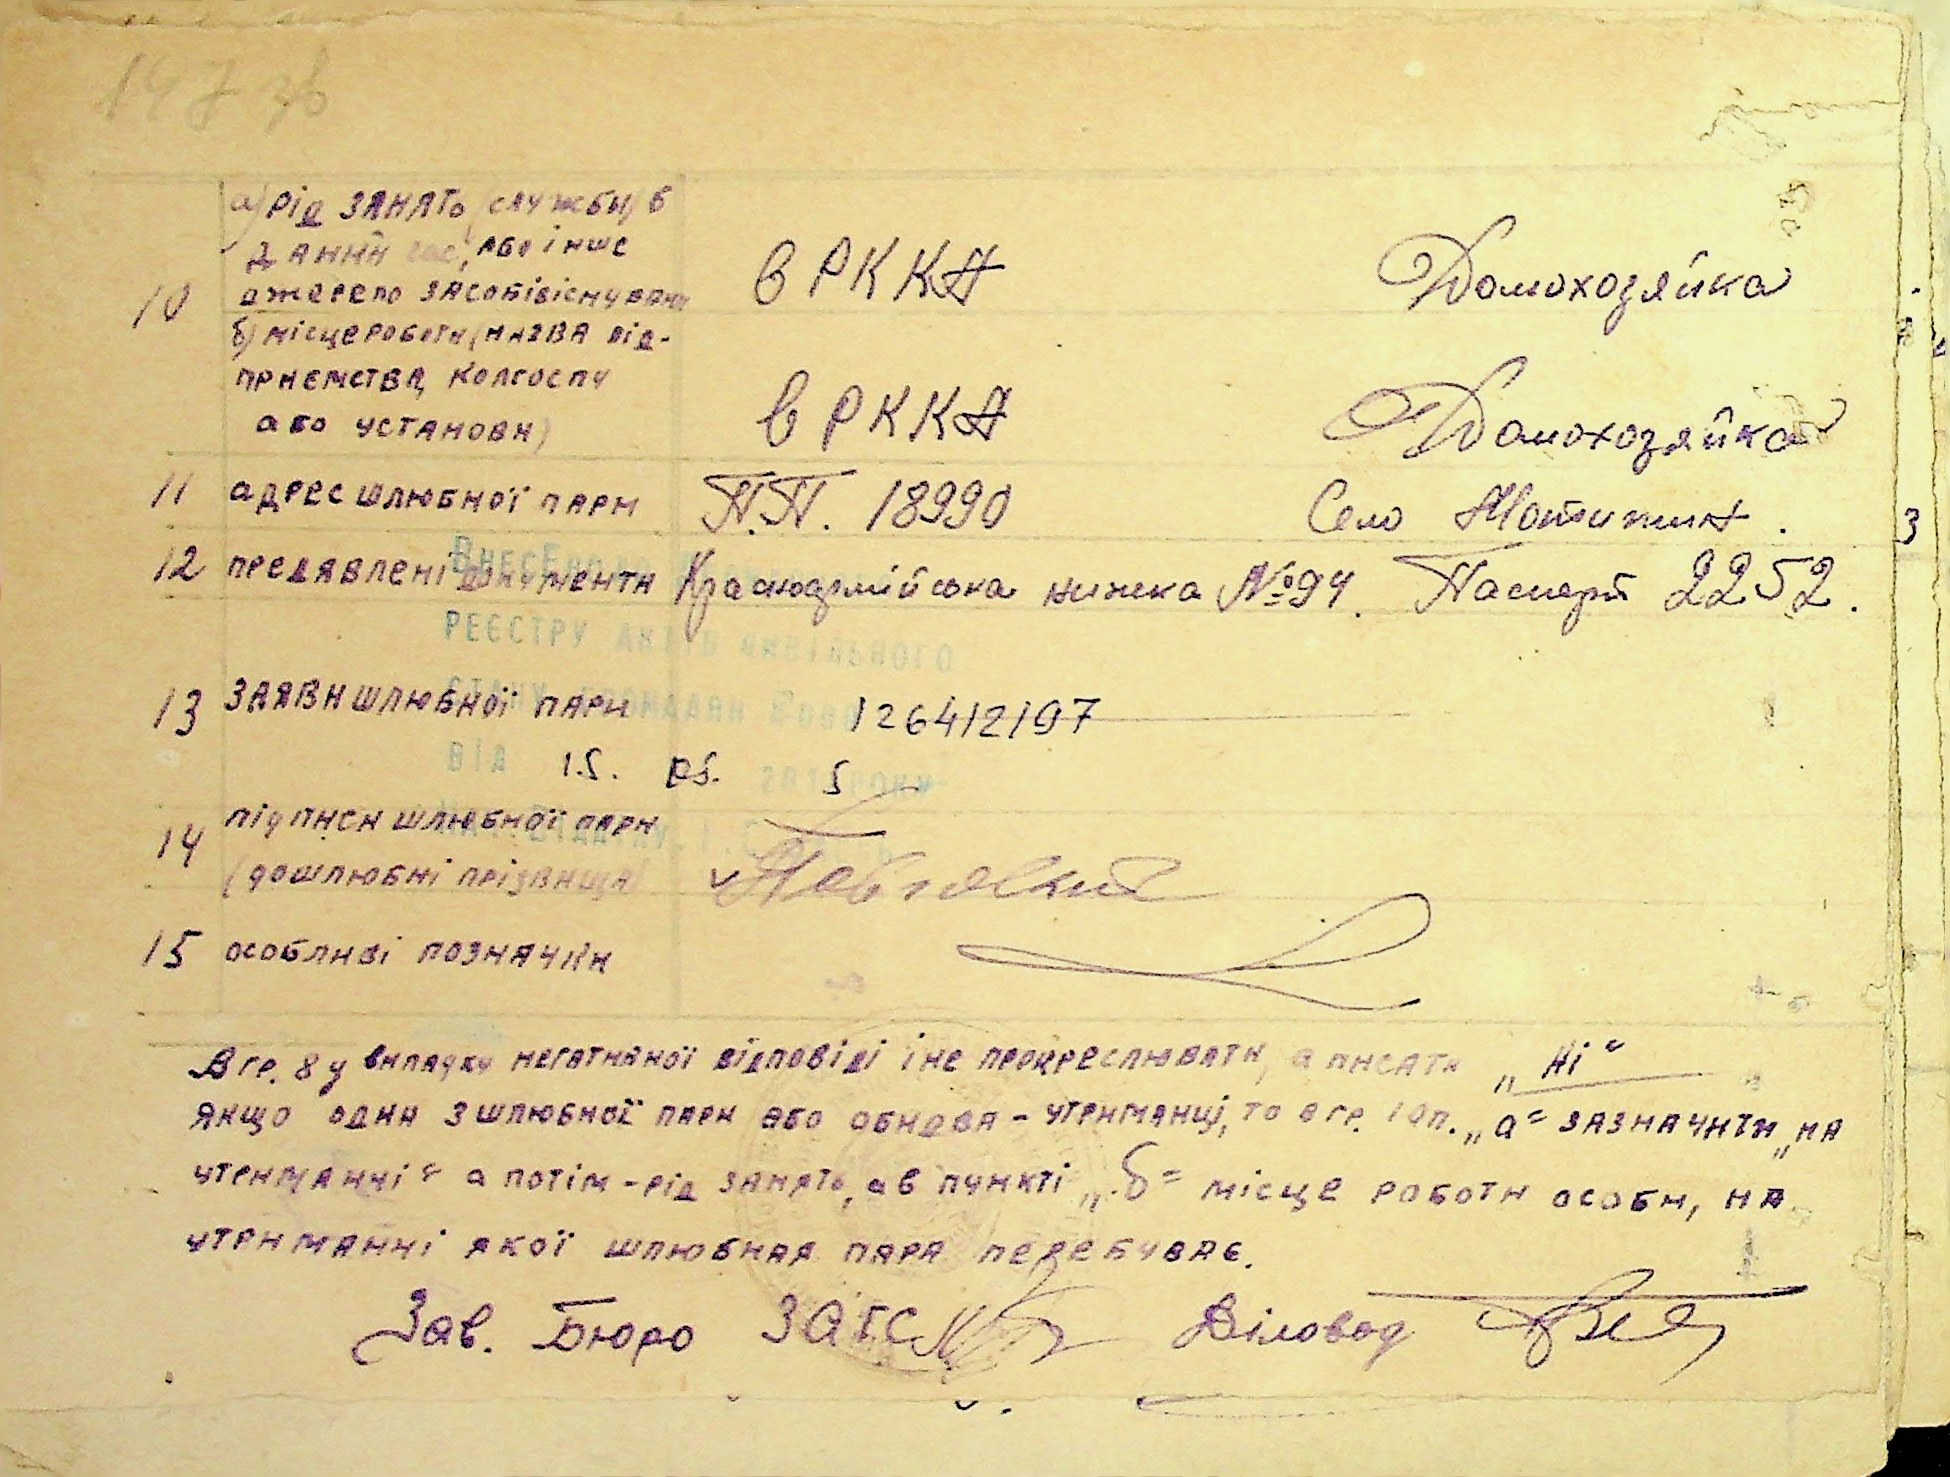 147 зв
а) рід занять (служби) в
даний час, або інше
10 джерело засобів існування
в РККА Домохозяйка
б) місце роботи (назва під-
приємства, колгоспу
або установи)
в РККА Домохозяйка
11 адрес шлюбної пари П.П. 18990 Село
12 предявлені документи Красноармійська книжка №94. Паспорт 2252.
Внесено
РЕЄСТРУ АКТІВ ЦИВІЛЬНОГО
13 заяви шлюбної пари 126412197
СТАНУ ГРОМАДЯН
ВІД 15. 05. 5 РОКУ
14 підписи шлюбної пари
(дошлюбні прізвища)
15 особливі позначки
В гр. 8 у випадку негативної відповіді і не прокреслювати, а писати „Ні“
якщо одна з шлюбної пари або обидва - утриманці, то в гр. 10 п. „а“ зазначити „на
утриманні“ а потім - рід занять, а в пункті „б“ місце роботи особи, на
утриманні якої шлюбная пара перебуває.
Зав. Бюро ЗАГС Діловод